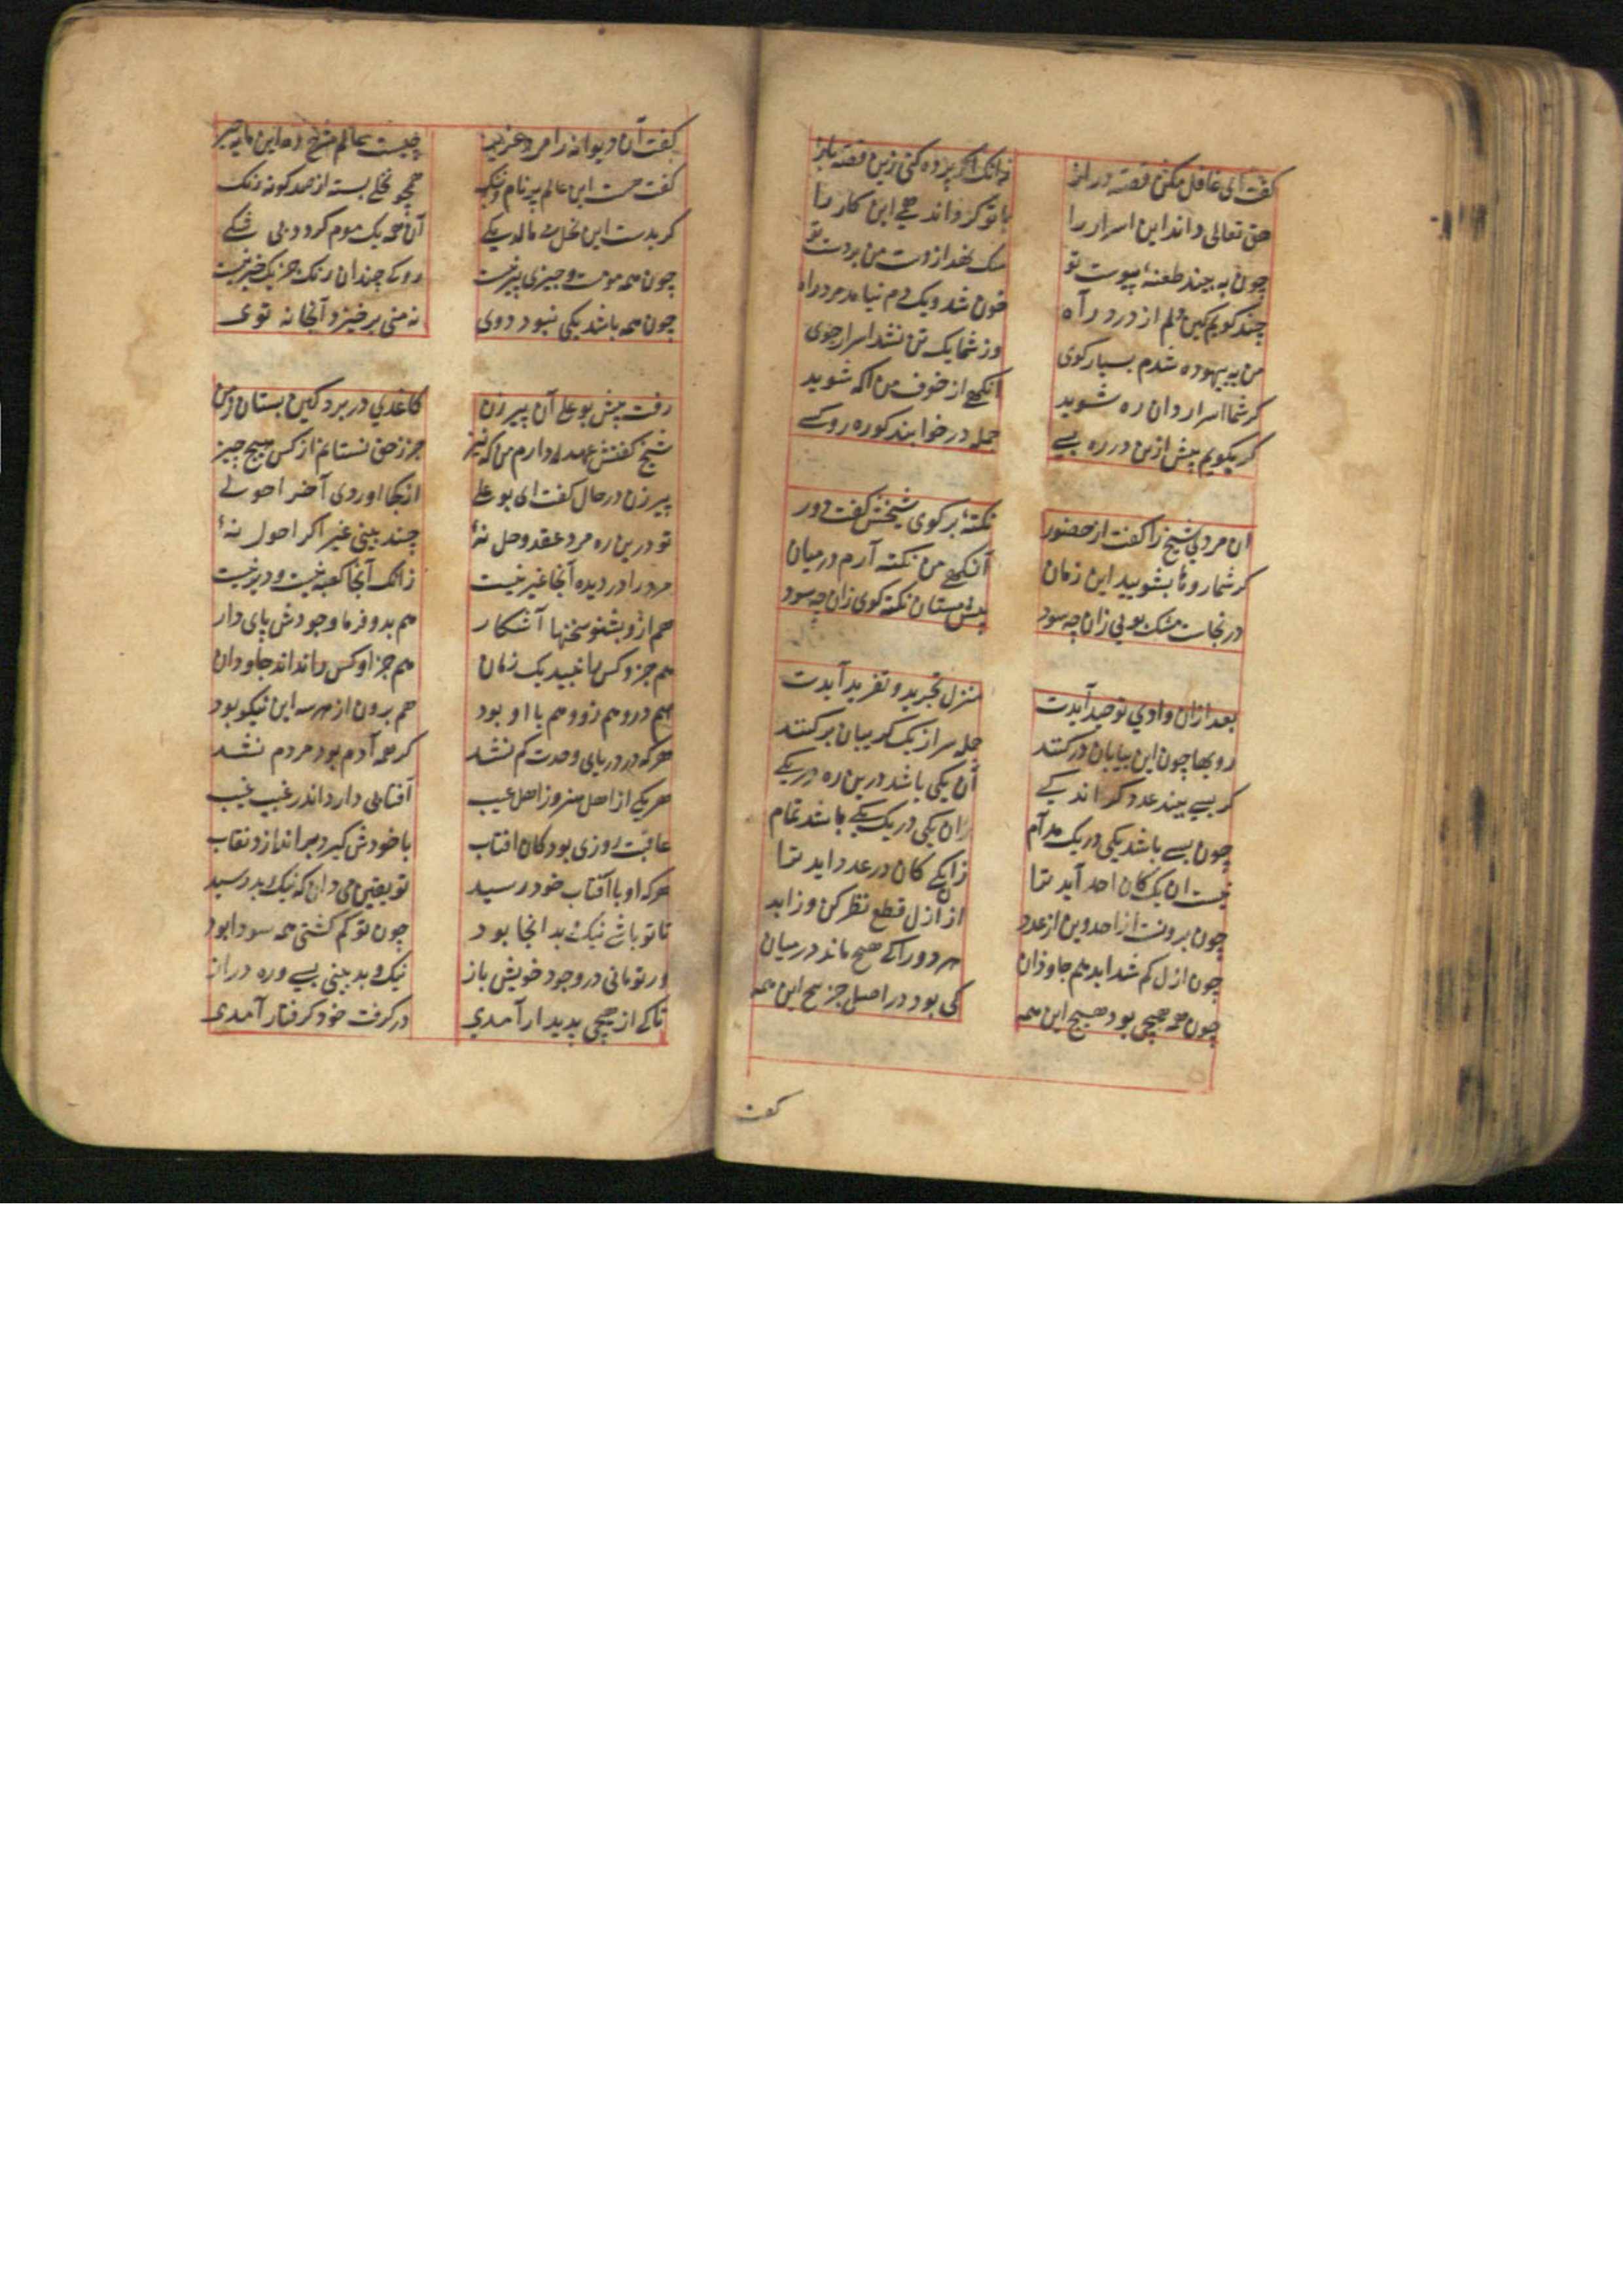 کفت ای غافل مکن قصه دراز زانک اکر پرده کنی زین قصه باز
حق تعالی داند این اسرار را با تو کرداند همی این کار را
چون به بیند طعنه پیوست تو سنک نهد از دست من بر دست تو
چند کویم کین دلم از درد راه خون شد و یک دم نیامد مرد راه
من به بیهوده شدم بسیار کوی وز شما یک تن نشد اسرار جوی
کر شما اسرار دان ره شوید آنکهی از خوف من اکه شوید
کر بکویم بیش ازین در ره بسی جمله در خوابند کو ره رو کسی
ان مریدی شیخ را کفت از حضور نکته بر کوی شیخش کفت دور
کر شما روها بشویید این زمان آنکهی من نکته آرم در میان
در نجاست مشک بویی زان چه سود پیش مستان نکته کوی زان چه سود
بعد ازان وادی توحید آیدت منزل تجرید و تفرید آیدت
رویها چون این بیابان در کنند جمله سر از یک کریبان بر کنند
کر بسی بیند عدد کر اندکی آن یکی باشد درین ره در یکی
چون بسی باشد یکی در یک مدام ان یکی در یک یکی باشد تمام
نیست ان یک کان احد آید ترا زان یکی کان در عدد اید ترا
چون برونست از احد وین از عدد از ازل قطع نظر کن وز ابد
چون ازل کم شد ابد هم جاودان هر دو را کی هیچ ماند در میان
چون همه هیچی بود هیچ این همه کی بود در اصل جز هیچ این همه
کفت
کفت آن دیوانه را مرد عزیز چیست عالم شرح ده این مایه چیز
کفت هست این عالم پر نام و ننک همچو نخلی بسته از صد کونه رنک
کر بدست این نخل می مالد یکی آن همه یک موم کردد بی شکی
چون همه مومست و چیزی نیز نیست رو که چندان رنک جز یک چیز نیست
چون همه باشد یکی نبود دوی نه منی بر خیزد آنجا نه توی
رفت پیش بو علی آن پیر زن کاغذی در برد کین بستان ز من
شیخ کفتش عهد دارم من که نیز جز ز حق نستانم از کس هیچ چیز
پیر زن در حال کفت ای بو علی از کجا اوردی آخر احولی
تو درین ره مرد عقد و حل نهٔ چند بینی غیر اکر احول نهٔ
مرد را در دیده آنجا غیر نیست زانک آنجا کعبه نیست و دیر نیست
هم ازو بشنو سخنها آشکار هم بدو فرما وجودش پای دار
هم جز و کس را نبیند یک زمان هم جز او کس را نداند جاودان
هم درو هم زو و هم با او بود هم برون از هر سه این نیکو بود
هرکه در دریای وحدت کم نشد کر همه آدم بود مردم نشد
هر یکی از اهل هنر وز اهل عیب آفتابی دارد اندر غیب غیب
عاقبت روزی بود کان افتاب با خودش کیرد بر اندازد نقاب
هرکه او با آفتاب خود رسید تو یقین می دان که نیک و بد رسید
تا تو باشی نیک و بد انجا بود چون تو کم کشتی همه سودا بود
ور تو مانی در وجود خویش باز نیک و بد بینی بسی و ره دراز
تا که از هیچی پدیدار آمدی در کرفت خود کرفتار آمدی